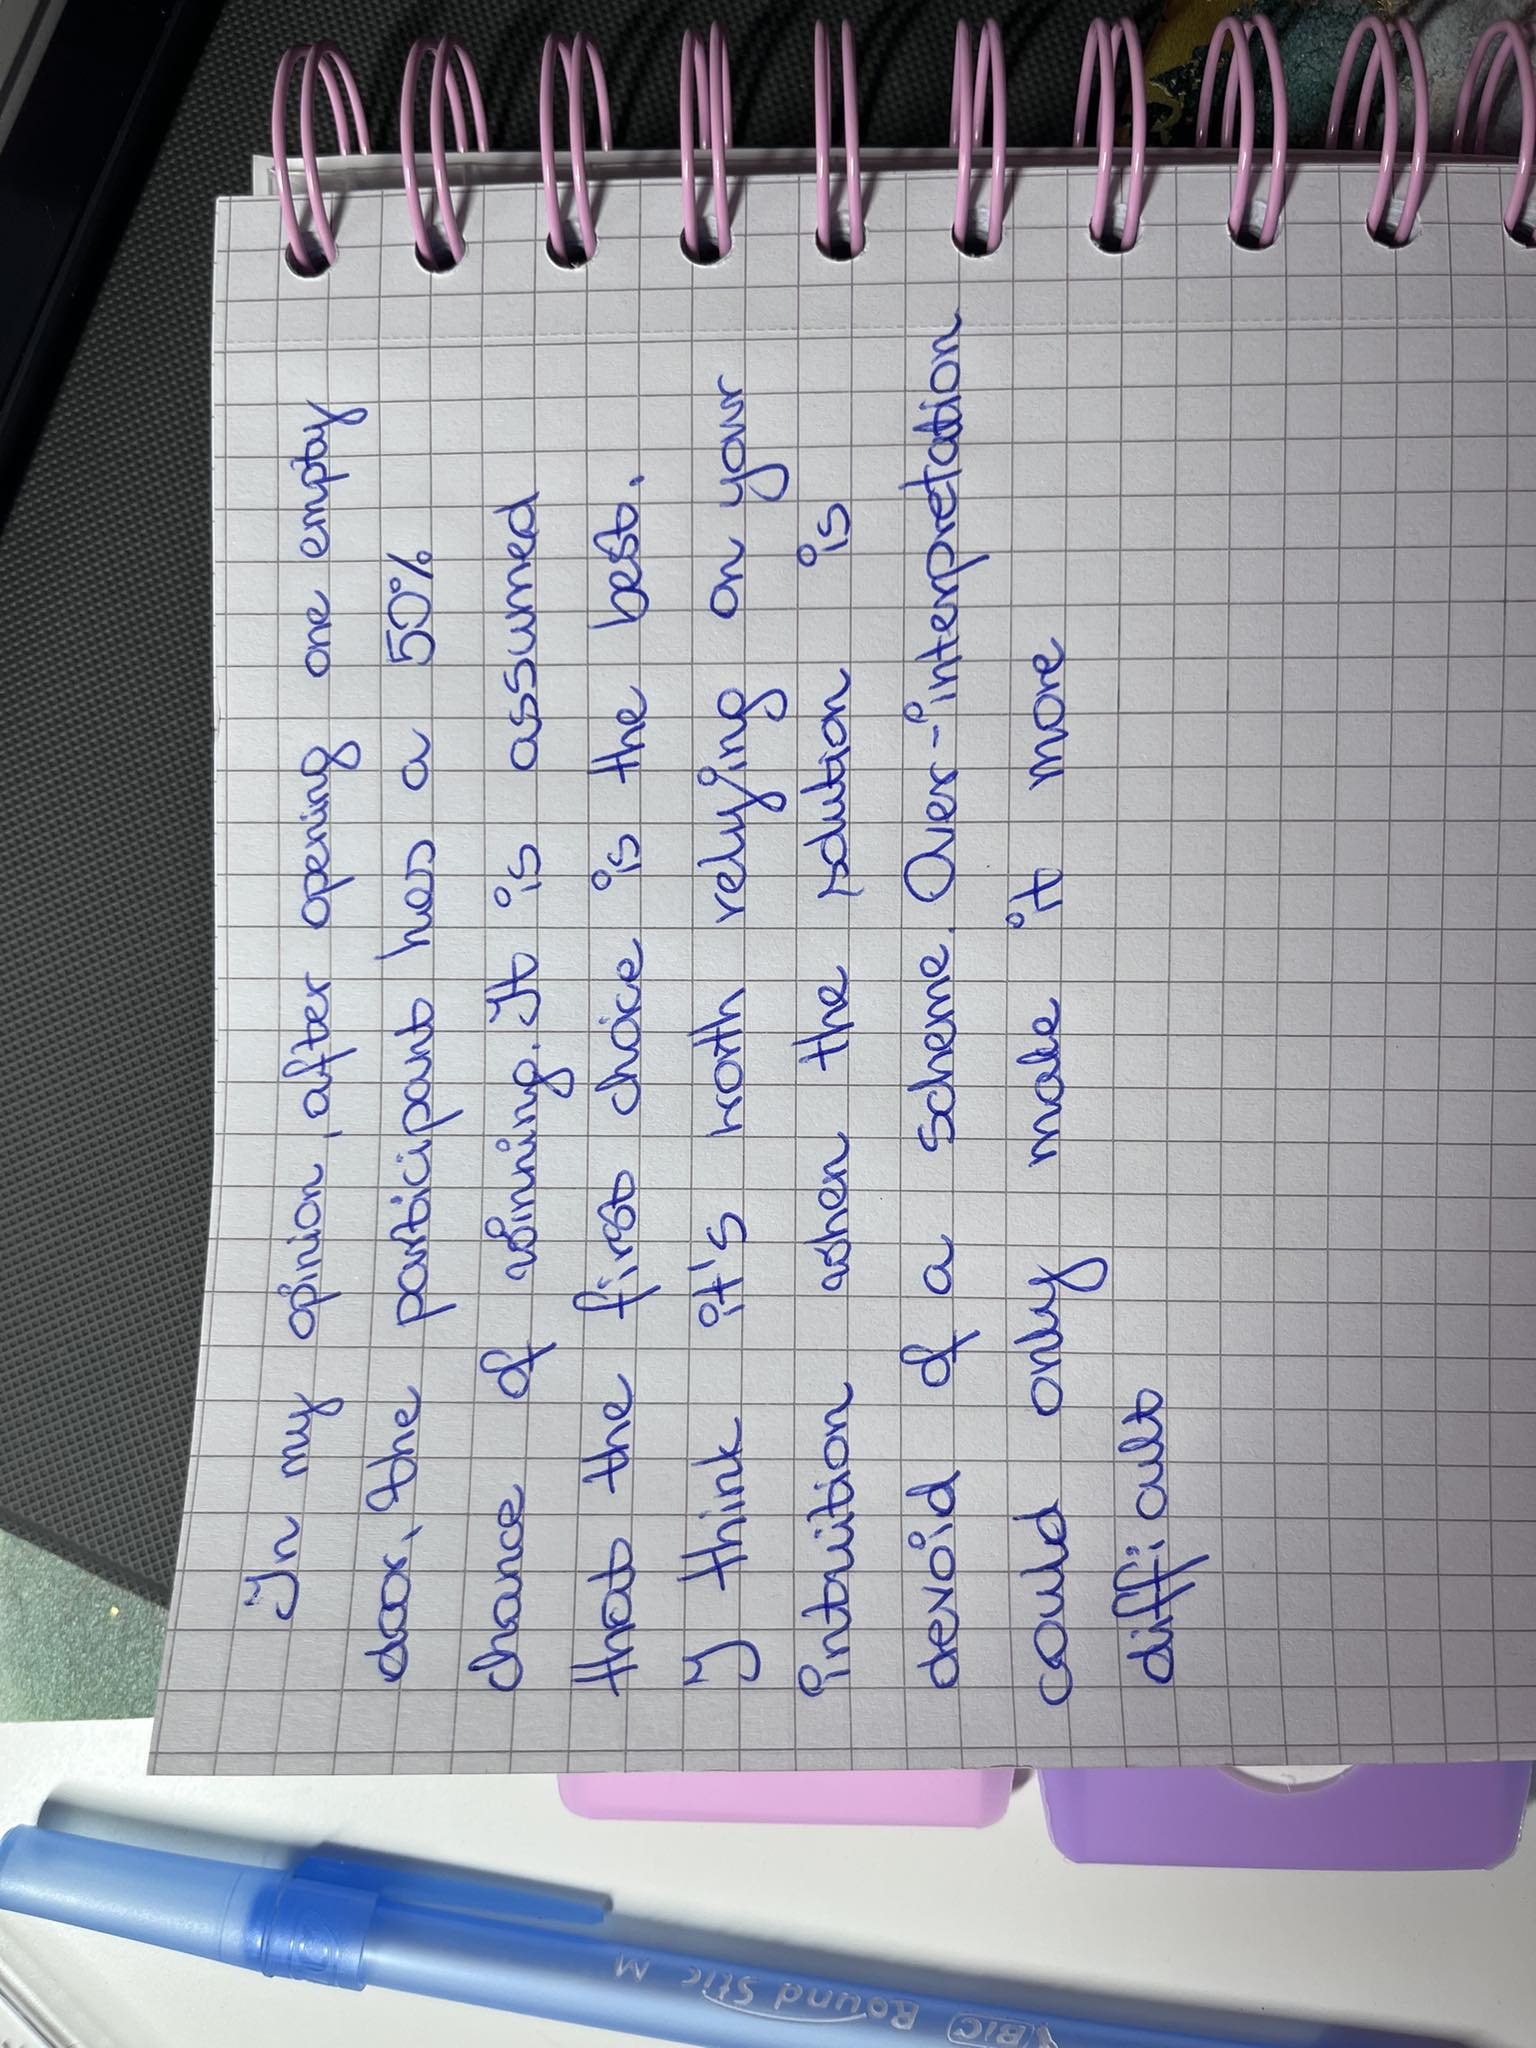 In my opinion, after opening one empty
door, the participant has a 50%
chance of winning. It is assumed
that the first choice is the best.
I think it's worth relying on your
intuition when the solution is
devoid of a scheme. Over-interpretation
could only make it more
difficult
BIC Round Stic M